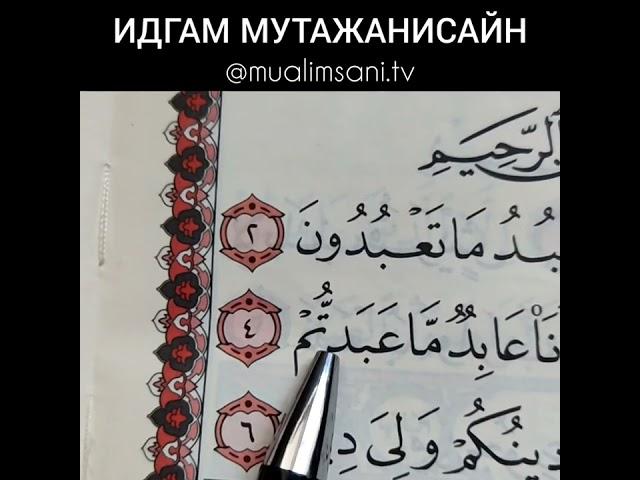 ИДГАМ МУТАЖАНИСАЙН
@mualimsani.tv
ٱلرَّحِيمِ
مَا تَعْبُدُونَ ٢
عَابِدٌ مَّا عَبَدتُّمْ ٤
وَلِىَ ٦